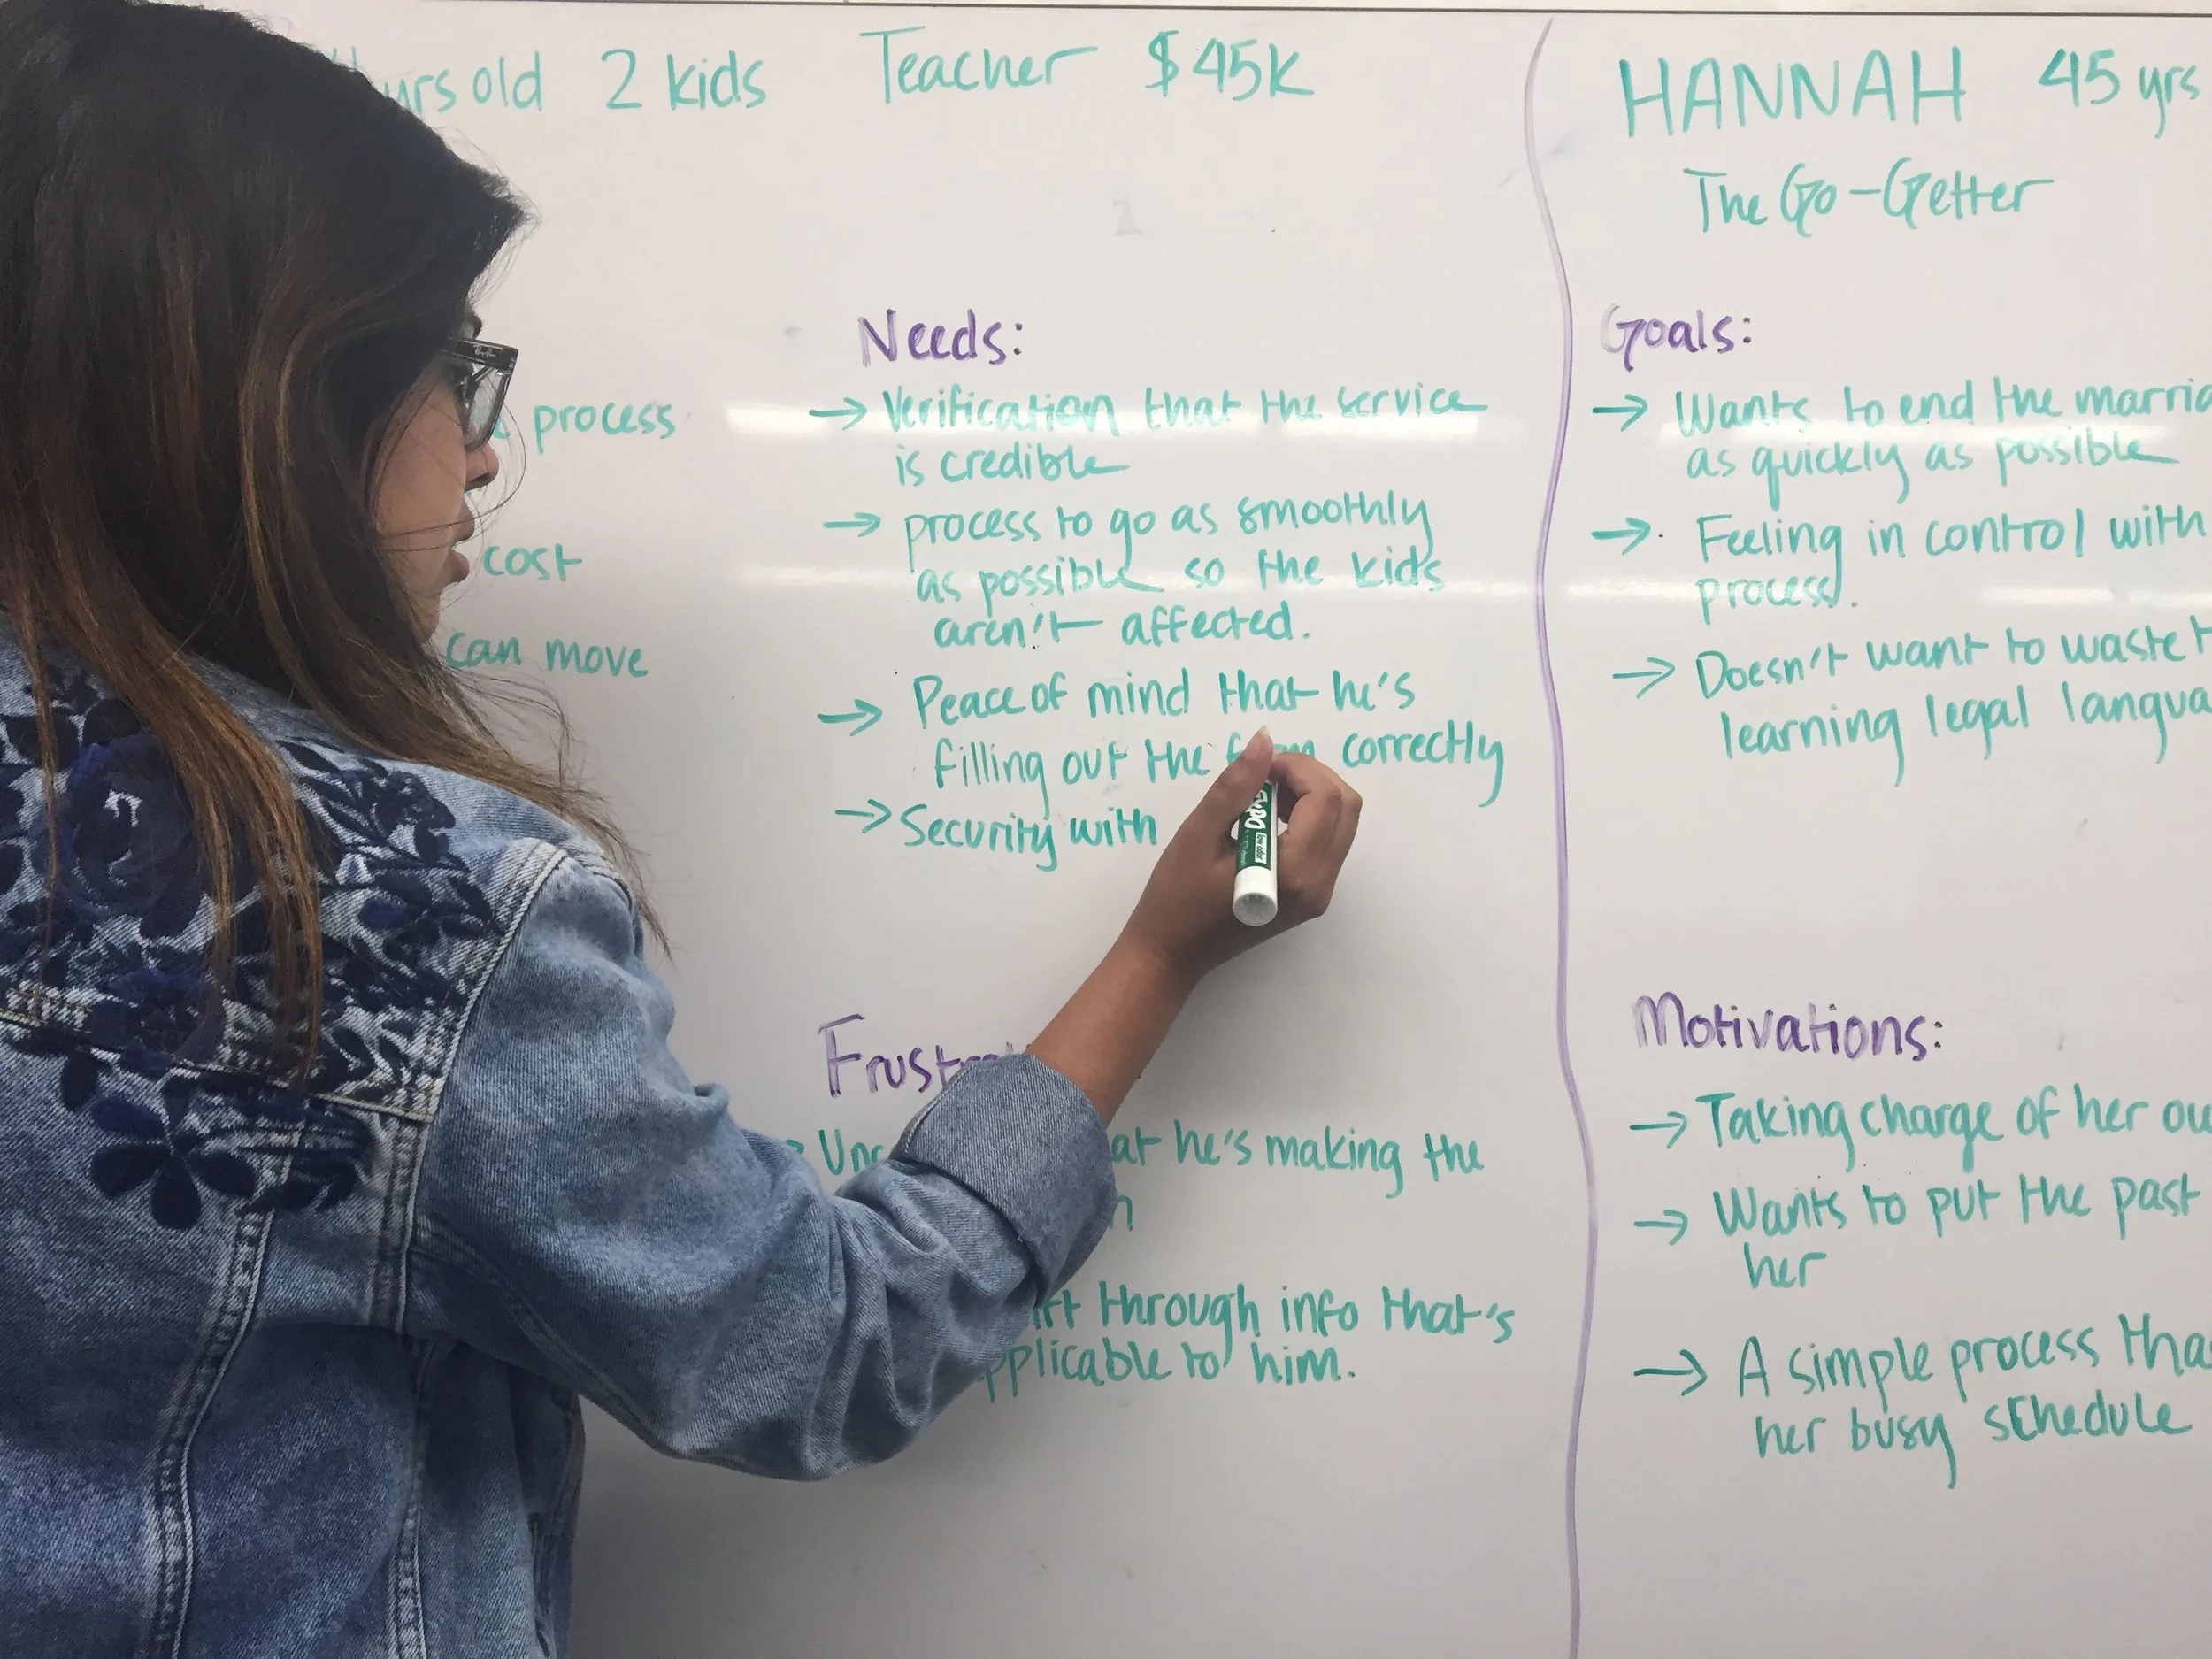 yrs old 2 kids Teacher $45K
process
cost
can move
Needs:
→ Verification that the service
is credible
→ process to go as smoothly
as possible so the kids
aren't affected.
→ Peace of mind that he's
filling out the correctly
→ Security with
he's making the
through info that's
to him.
HANNAH 45 yrs
The Go-Getter
Goals:
→ Wants to end the
as quickly as possible
→ Feeling in control with
process.
→ Doesn't want to waste
learning legal
Motivations:
→ Taking charge of her
→ Wants to put the past
her
→ A simple process
her busy schedule
Ray-Ban
EXPO
low odor